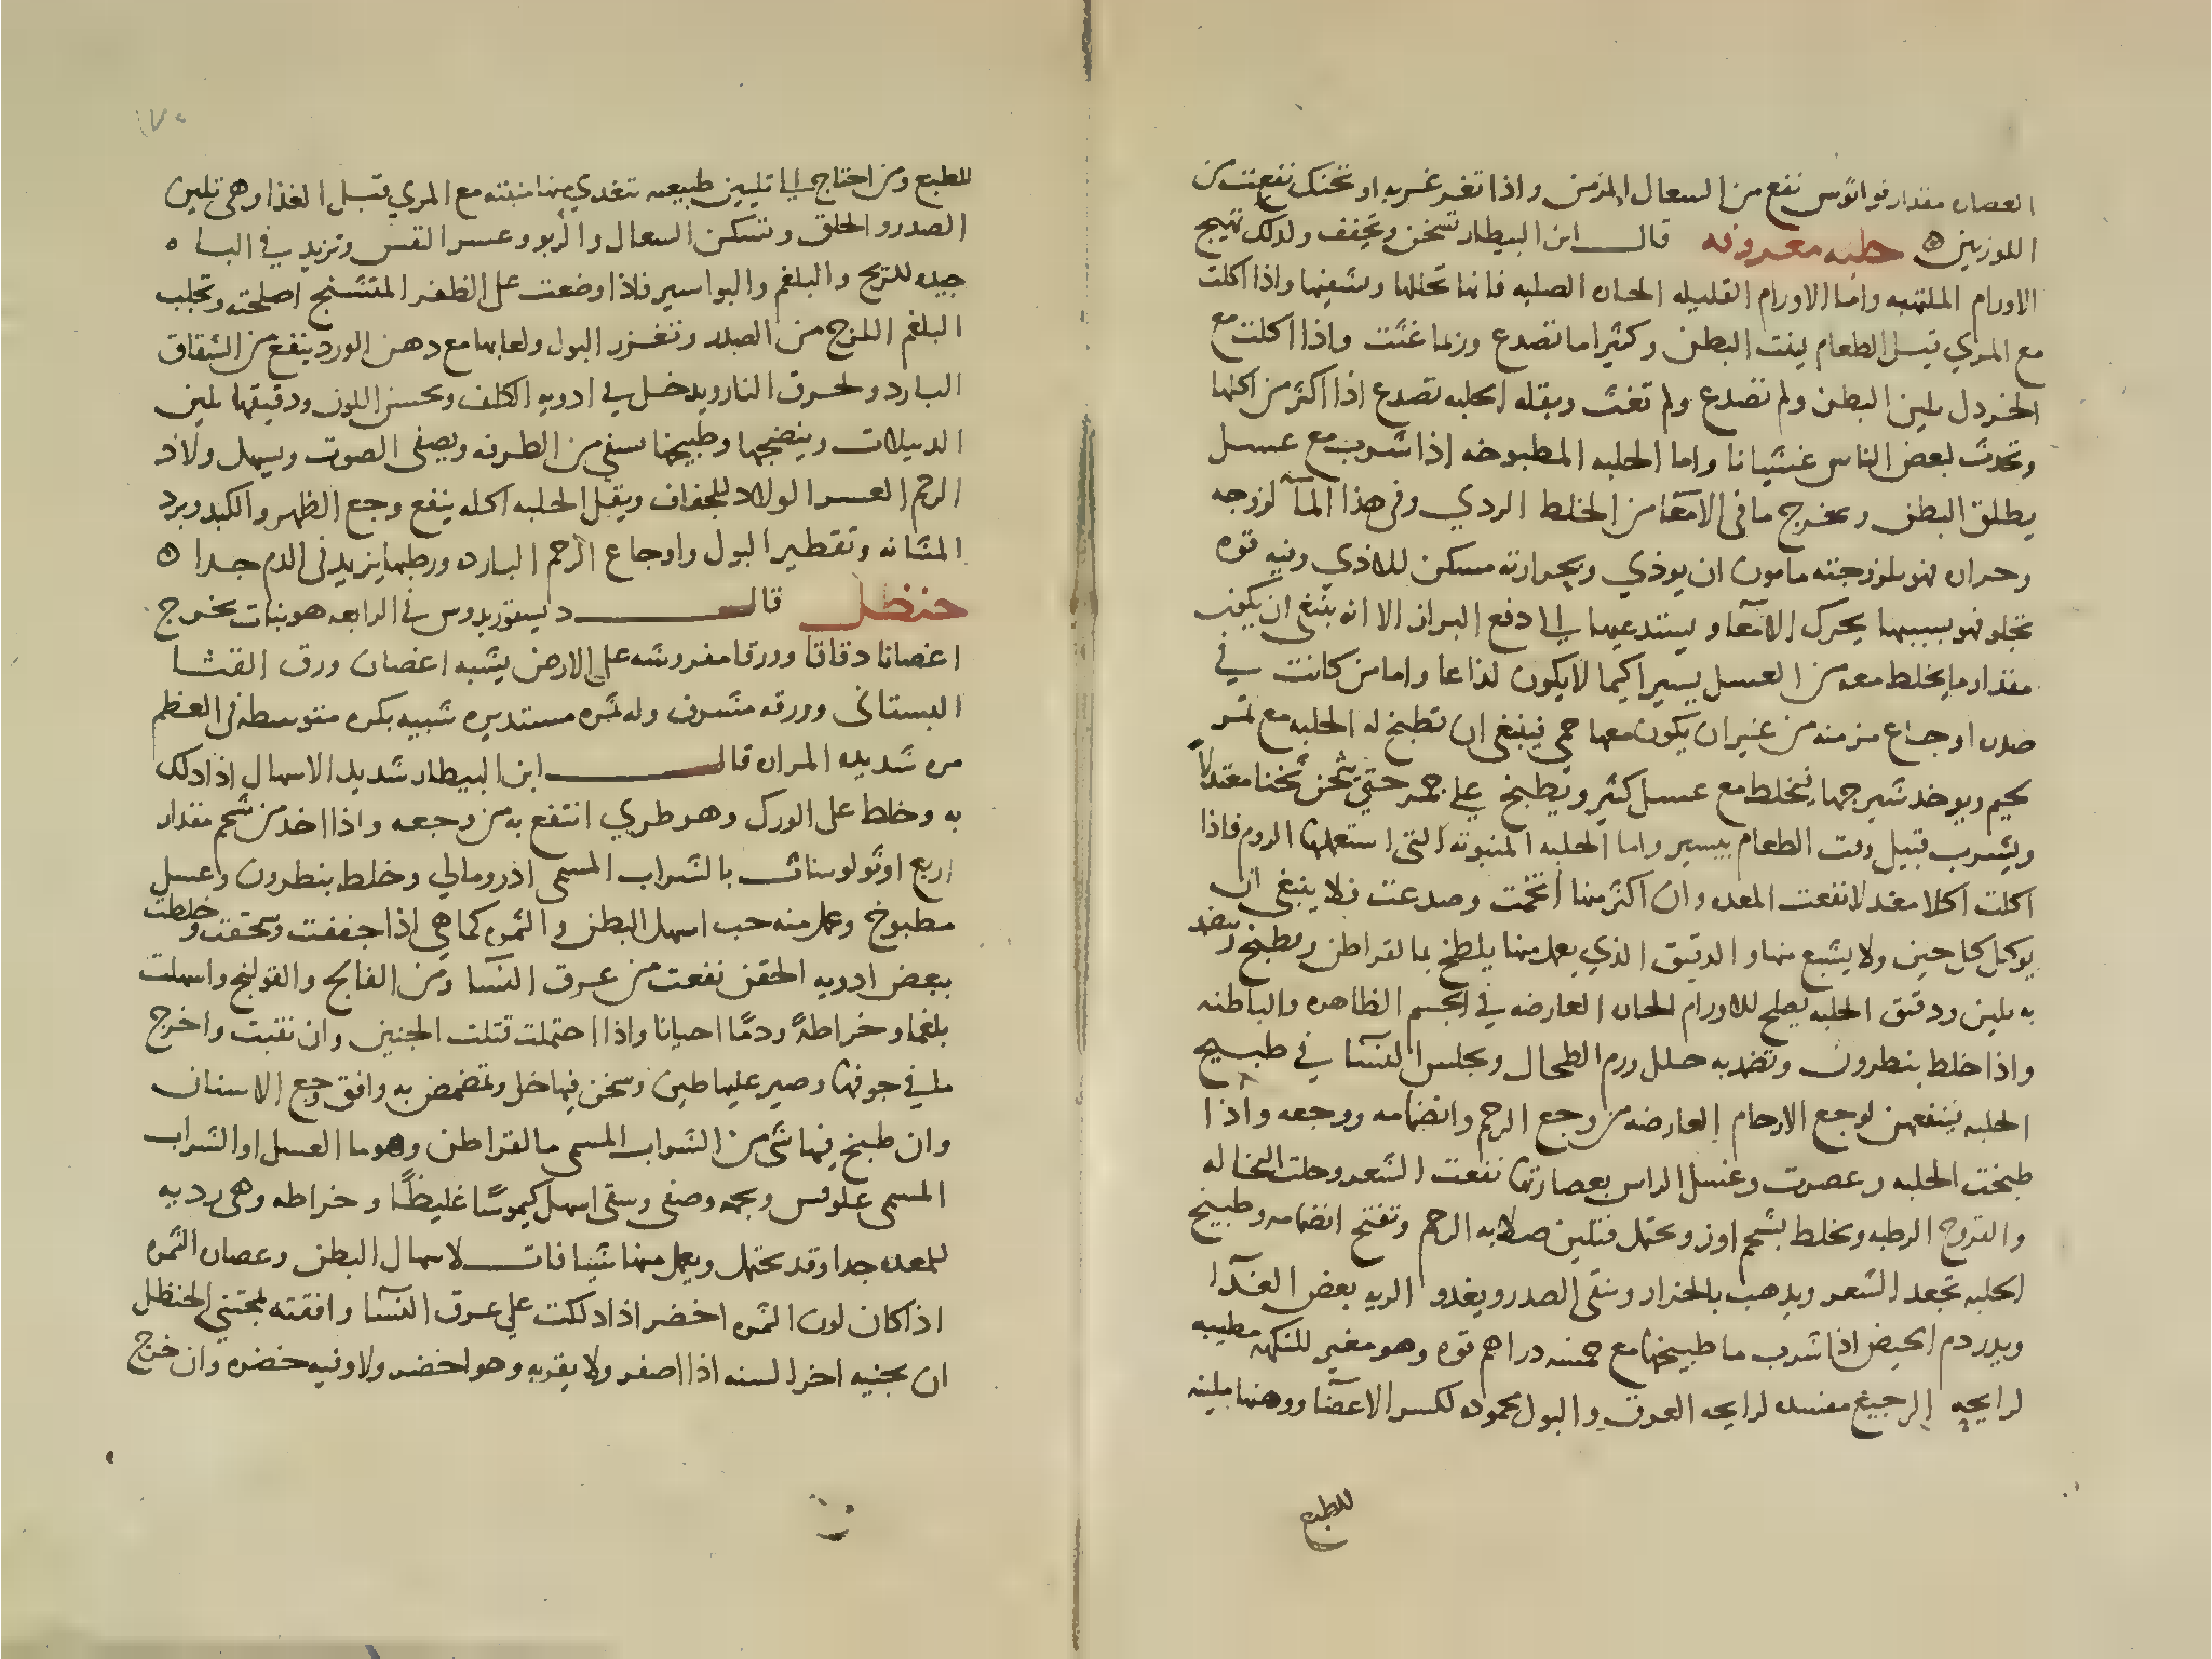 العصاره مقدار نواتوس نفع من السعال المزمن واذا تغرغر به او تحنك نفعت من
اللوزتين ه حلبه معروفه قال ابن البيطار تسخن وتجفف ولذلك تهيج
الاورام الملتهبه واما الاورام القليله الحاره الصلبه فانها تحللها وتشفيها واذا اكلت
مع المري قبل الطعام لينت البطن وكثيرا ما تصدع وربما غثت واذا اكلت مع
الخردل تلين البطن ولم تصدع ولم تغث وبقله الحلبه تصدع اذا اكثر من اكلها
وتحدث لبعض الناس غشيانا واما الحلبه المطبوخه اذا شربت مع عسل
يطلق البطن وتخرج ما فى الامعآ من الخلط الردي وفى هذا المآ لزوجه
وحراره فهو بلزوجته مامون ان يوذي وبحرارته مسكن للاذي وفيه قوه
تجلو فهو بسببها يحرك الامعآ ويستدعيها الى دفع البراز الا انه ينبغى ان يكون
مقدار ما يخلط معه من العسل يسيرا كيما لا يكون لذاعا واما من كانت في
صدره اوجاع مزمنه من غير ان يكون معها حمى فينبغى ان تطبخ له الحلبه مع تمر
لحيم ويوخد شيرجها فيخلط مع عسل كثير ويطبخ على جمر حتى يثخن ثخنا معتدلاً
ويشرب قبيل وقت الطعام بيسير واما الحلبه المنبوته التى استعملها الروم فاذا
اكلت اكلا معتدلا نفعت المعده وان اكثر منها اتخمت وصدعت فلا ينبغى ان
يوكل كل حين ولا يشبع منها والدقيق الذي يعمل منها يلطخ بما لقراطن ويطبخ ويتضمد
به يلين ودقيق الحلبه يصلح للاورام الحاره العارضه في الجسم الظاهره والباطنه
واذا خلط بنطرون وتضمد به حلل ورم الطحال وتجلس النسآ في طبيخ
الحلبه ينتفعن لوجع الارحام العارضه من وجع الرحم وانضمامه ووجعه واذا
طبخت الحلبه وعصرت وغسل الراس بعصارتها نفعت الشعر وحلت النخاله
والقروح الرطبه وتخلط بشحم اوز وتحتمل فتلين صلابه الرحم وتفتح انضمامه وطبيخ
الحلبه تجعد الشعر ويدهب بالحزاز وينقى الصدر ويغدو الريه بعض الغدآ
ويدر دم الحيض اذا شرب ما طبيخها مع خمسه دراهم فوه وهو مغير للنكهه مطيبه
لرايحه الرجيع مفسده لرايحه العرق والبول محموده لكسر الاعضآ ودهنها ملينه
للطبع
للطبع ومن احتاج الى تليين طبيعته تغدي منها منبته مع المري قبل الغذا وهى تلين
الصدر والحلق وتسكن السعال والربو وعسر النفس وتزيد في الباه
جيده للريح والبلغم والبواسير فاذا وضعت على الظفر المتشنج اصلحته وتجلب
البلغم اللزج من الصدر وتغزر البول ولعابها مع دهن الورد ينفع من الشقاق
البارد ولحرق النار ويدخل في ادويه الكلف وتحسن اللون ودقيقها يلين
الدبيلات وينضجها وطبيخها يشفى من الطرفه ويصفى الصوت ويسهل ولاد
الرحم العسر الولاد للجفاف وبقل الحلبه اكله ينفع وجع الظهر والكبد وبرد
المثانه وتقطير البول واوجاع الرحم البارده ورطبها يزيد فى الدم جدا ه
حنظل قال ديسقوريدوس في الرابعه هو نبات يخرج
اغصانا دقاقا وورقا مفروشه على الارض يشبه اغصان ورق القثا
البستانى وورقه مشرف وله ثمره مستديره شبيه بكره متوسطه فى العظم
مره شديده المراره قال ابن البيطار شديد الاسهال اذا دلك
به وخلط على الورك وهو طري انتفع به من وجعه واذا اخذ من شحمه مقدار
اربع اوثولوسات بالشراب المسمى ادرومالي وخلط بنطرون وعسل
مطبوخ وعمل منه حب اسهل البطن والثمره كما هي اذا جففت وسحقت وخلطت
ببعض ادويه الحقن نفعت من عرق النسا ومن الفالج والقولنج واسهلت
بلغما وخراطةً ودمًا احيانا واذا احتملت قتلت الجنين وان نقبت واخرج
ما في جوفها وصير عليها طين وسخن فيها خل وتمضمض به وافق وجع الاسنان
وان طبخ فيها شى من الشراب المسمى مالقراطن وهو ما العسل او الشراب
المسمى علوقس ونجمه وصفى وسقى اسهل كيموسًا غليظًا وخراطه وهى رديه
للمعده جدا وقد تحتمل ويعمل منها شيافات لاسهال البطن وعصاره الثمره
اذا كان لون الثمره اخضر اذا دلكت على عرق النسآ وافقته مجتني الحنظل
ان تجنيه اخر السنه اذا اصفر ولا يقربه وهو اخضر ولا وفيه خضره وان خرج